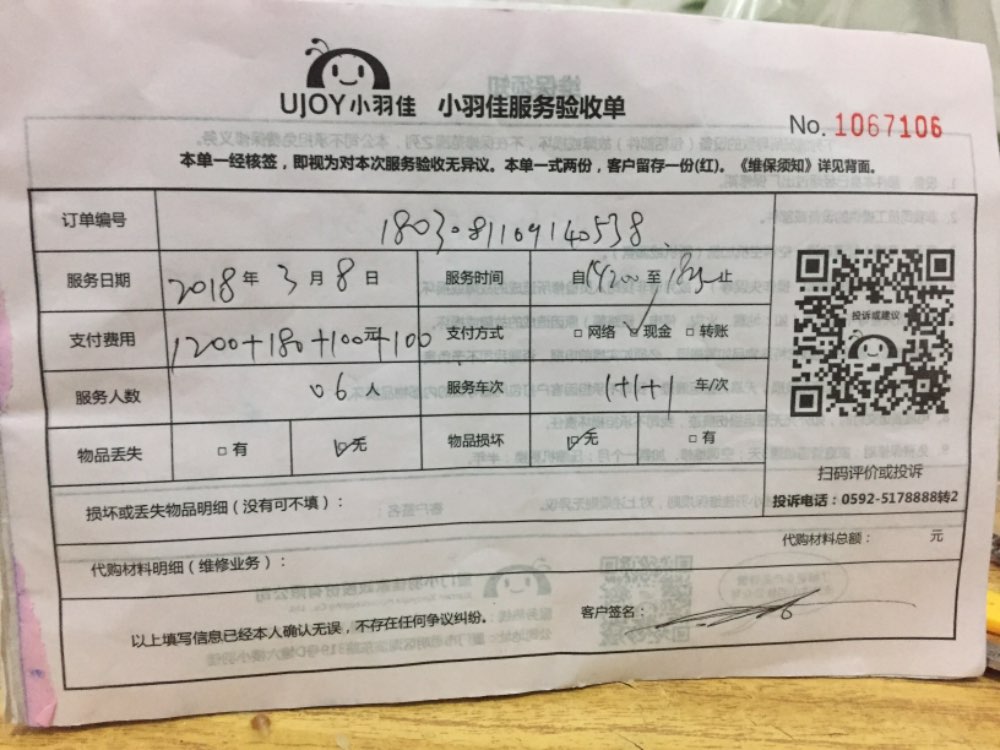 UJOY小羽佳 小羽佳服务验收单
No. 1067106
本单一经核签，即视为对本次服务验收无异议。本单一式两份，客户留存一份(红)。《维保须知》详见背面。
订单编号 1803081109140538
服务日期 2018年3月8日 服务时间 自 至 止
支付费用 1200+180+100元+100 支付方式 □网络 ☑现金 □转账
服务人数 06人 服务车次 1+1+1 车/次
物品丢失 □有 ☑无 物品损坏 ☑无 □有
投诉或建议
扫码评价或投诉
投诉电话：0592-5178888转2
损坏或丢失物品明细（没有可不填）：
代购材料总额： 元
代购材料明细（维修业务）：
以上填写信息已经本人确认无误，不存在任何争议纠纷。
客户签名：